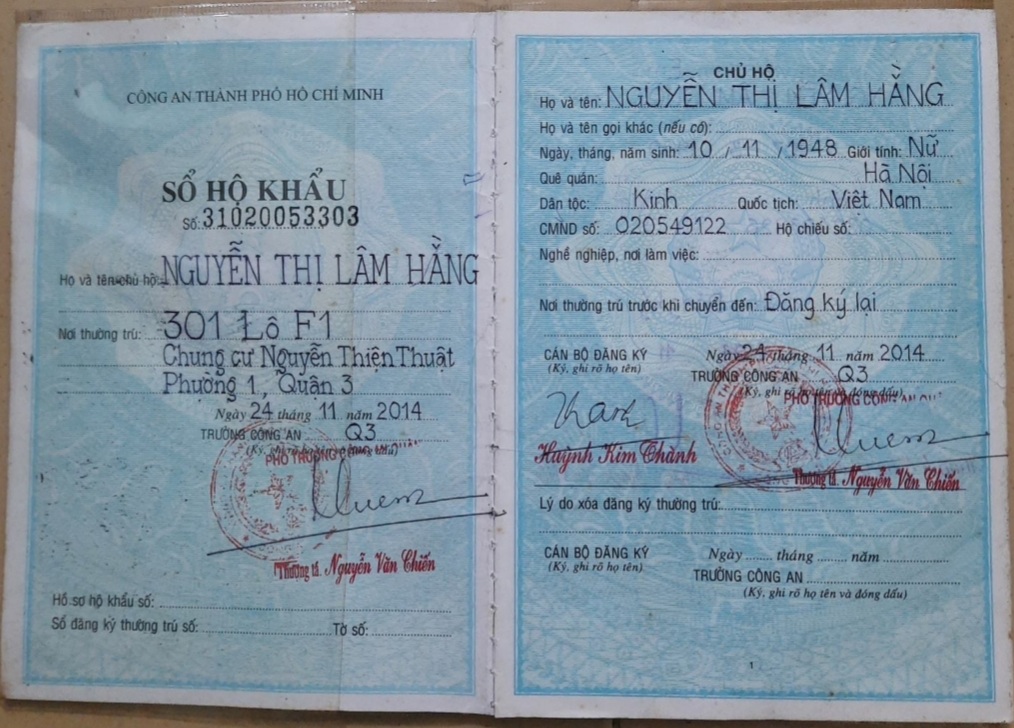 CÔNG AN THÀNH PHỐ HỒ CHÍ MINH
SỔ HỘ KHẨU
Số: 31020053303
Họ và tên chủ hộ: NGUYỄN THỊ LÂM HẰNG
Nơi thường trú: 301 Lô F1
Chung cư Nguyễn Thiện Thuật
Phường 1, Quận 3
Ngày 24 tháng 11 năm 2014
TRƯỞNG CÔNG AN Q3
(Ký, ghi rõ họ tên và đóng dấu)
PHÓ TRƯỞNG CÔNG AN
Thượng tá. Nguyễn Văn Chiến
Hồ sơ hộ khẩu số:
Sổ đăng ký thường trú số: Tờ số:
CHỦ HỘ
Họ và tên: NGUYỄN THỊ LÂM HẰNG
Họ và tên gọi khác (nếu có):
Ngày, tháng, năm sinh: 10 / 11 / 1948 Giới tính: Nữ
Quê quán: Hà Nội
Dân tộc: Kinh Quốc tịch: Việt Nam
CMND số: 020549122 Hộ chiếu số:
Nghề nghiệp, nơi làm việc:
Nơi thường trú trước khi chuyển đến: Đăng ký lại
CÁN BỘ ĐĂNG KÝ Ngày 24 tháng 11 năm 2014
(Ký, ghi rõ họ tên) TRƯỞNG CÔNG AN Q3
(Ký, ghi rõ họ tên và đóng dấu)
PHÓ TRƯỞNG CÔNG AN
Huỳnh Kim Thành
Thượng tá. Nguyễn Văn Chiến
Lý do xóa đăng ký thường trú:
CÁN BỘ ĐĂNG KÝ Ngày tháng năm
(Ký, ghi rõ họ tên) TRƯỞNG CÔNG AN
(Ký, ghi rõ họ tên và đóng dấu)
1